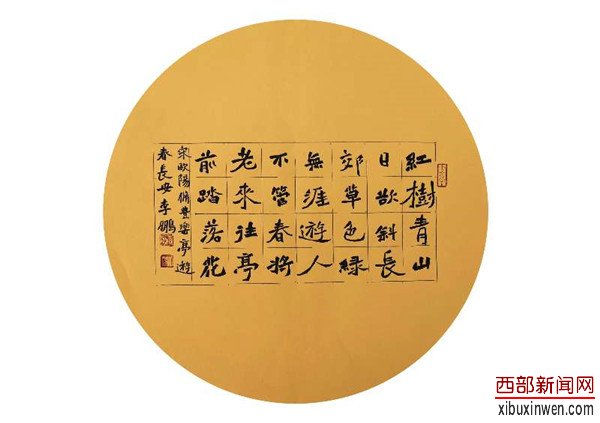 紅樹青山
日欲斜長
郊草色綠
無涯遊人
不管春將
老來往亭
前踏落花
宋欧陽脩豐樂亭遊
春長安李鵬
西部新闻网
xibuxinwen.com